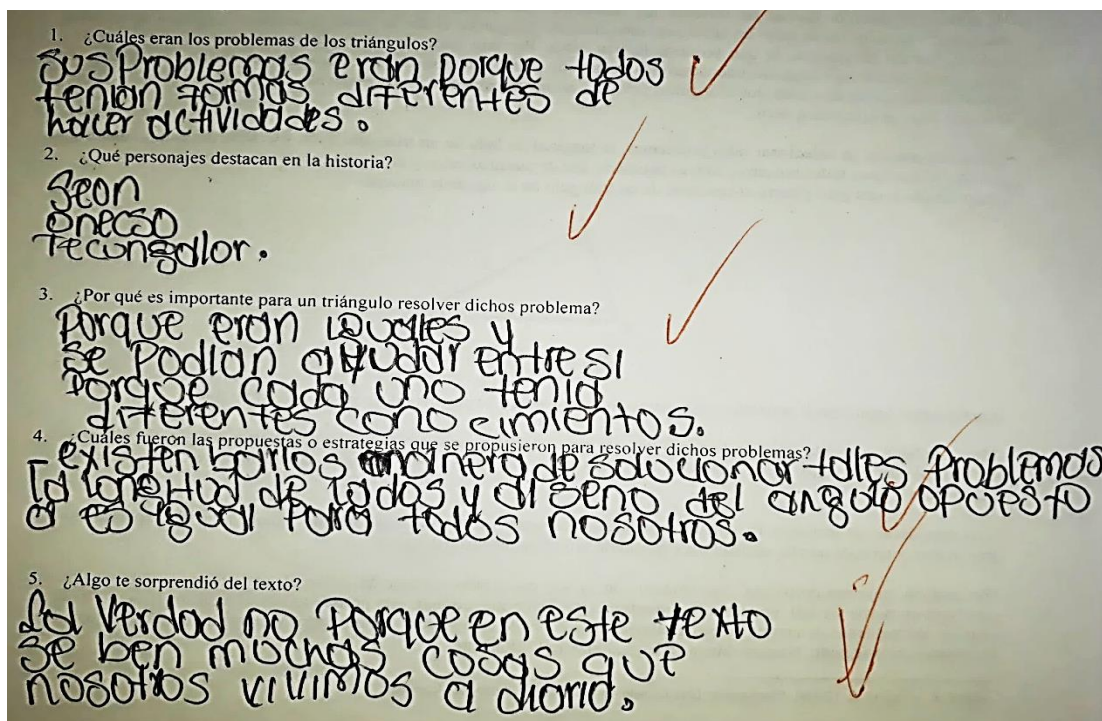 1. ¿Cuáles eran los problemas de los triángulos?
Sus Problemas eran porque todos
tenían formas diferentes de
hacer actividades.
2. ¿Qué personajes destacan en la historia?
Seon
onecso
Tecungalor.
3. ¿Por qué es importante para un triángulo resolver dichos problema?
Porque eran iguales y
se Podían ayudar entre si
Porque cada uno tenía
diferentes conocimientos.
4. ¿Cuáles fueron las propuestas o estrategias que se propusieron para resolver dichos problemas?
existen barios manera de solucionar tales Problemas
la longitud de lados y al seno del angulo opuesto
a es igual Para todos nosotros.
5. ¿Algo te sorprendió del texto?
La Verdad no Porque en este texto
se ben muchas cosas que
nosotros vivimos a diario.